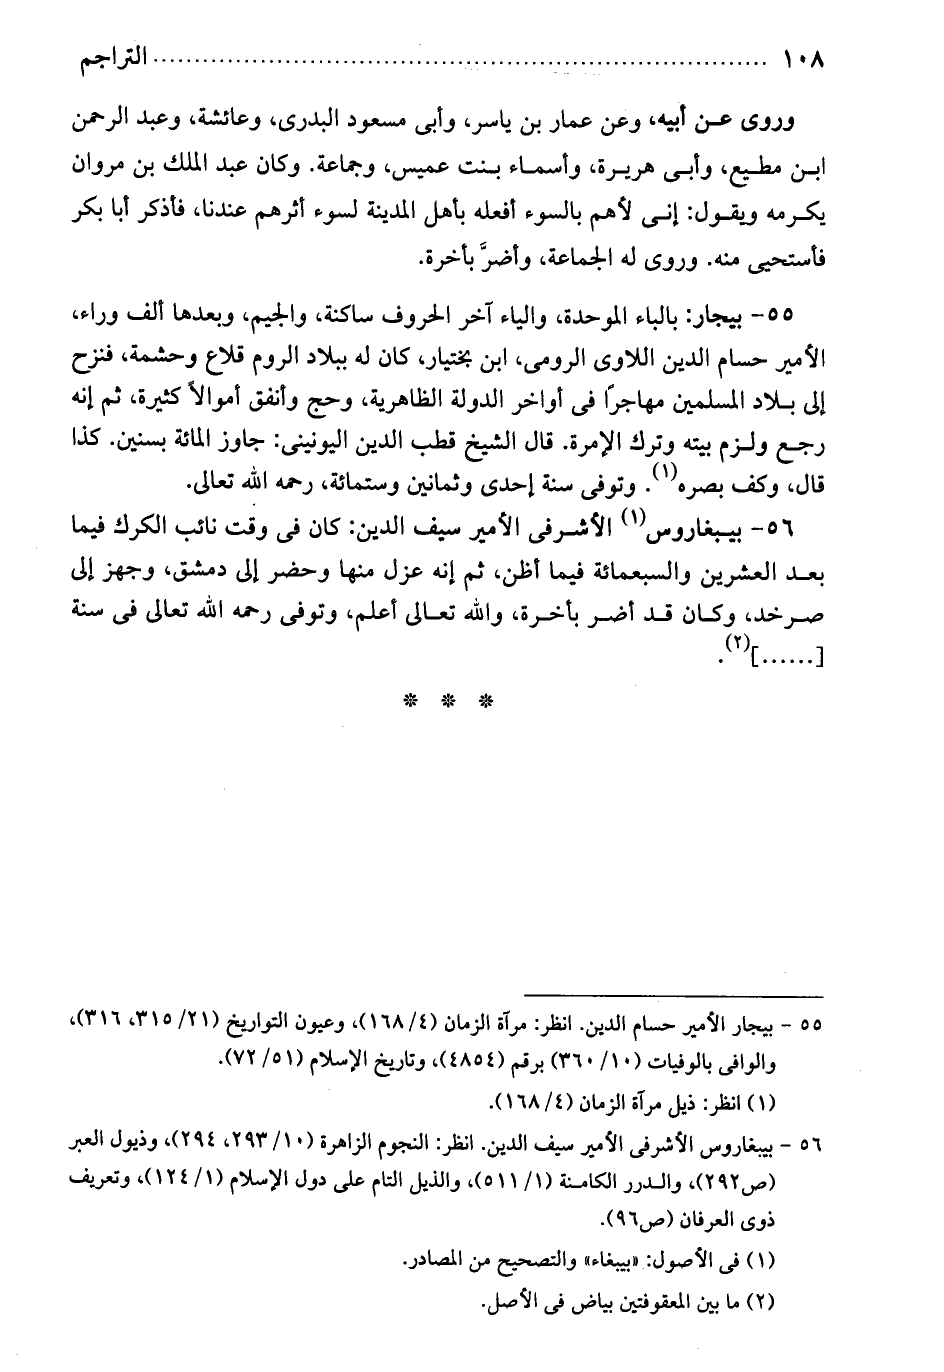 ١٠٨ ........................................................................ التراجم
وروى عن أبيه، وعن عمار بن ياسر، وأبى مسعود البدرى، وعائشة، وعبد الرحمن
ابن مطيع، وأبى هريرة، وأسماء بنت عميس، وجماعة. وكان عبد الملك بن مروان
يكرمه ويقول: إنى لأهم بالسوء أفعله بأهل المدينة لسوء أثرهم عندنا، فأذكر أبا بكر
فأستحيى منه. وروى له الجماعة، وأضرَّ بأخرة.
٥٥- بيجار: بالباء الموحدة، والياء آخر الحروف ساكنة، والجيم، وبعدها ألف وراء،
الأمير حسام الدين اللاوى الرومى، ابن بختيار، كان له ببلاد الروم قلاع وحشمة، فنزح
إلى بلاد المسلمين مهاجرًا فى أواخر الدولة الظاهرية، وحج وأنفق أموالاً كثيرة، ثم إنه
رجع ولزم بيته وترك الإمرة. قال الشيخ قطب الدين اليونينى: جاوز المائة بسنين. كذا
قال، وكف بصره(١). وتوفى سنة إحدى وثمانين وستمائة، رحمه الله تعالى.
٥٦- بيبغاروس(١) الأشرفى الأمير سيف الدين: كان فى وقت نائب الكرك فيما
بعد العشرين والسبعمائة فيما أظن، ثم إنه عزل منها وحضر إلى دمشق، وجهز إلى
صرخد، وكان قد أضر بأخرة، والله تعالى أعلم، وتوفى رحمه الله تعالى فى سنة
[......](٢).
* * *
٥٥ - بيجار الأمير حسام الدين. انظر: مرآة الزمان (١٦٨/٤)، وعيون التواريخ (٢١/ ٣١٥، ٣١٦)،
والوافى بالوفيات (١٠/ ٣٦٠) برقم (٤٨٥٤)، وتاريخ الإسلام (٥١/ ٧٢).
(١) انظر: ذيل مرآة الزمان (١٦٨/٤).
٥٦ - بيبغاروس الأشرفى الأمير سيف الدين. انظر: النجوم الزاهرة (١٠/ ٢٩٣، ٢٩٤)، وذيول العبر
(ص٢٩٢)، والدرر الكامنة (١/ ٥١١)، والذيل التام على دول الإسلام (١/ ١٢٤)، وتعريف
ذوى العرفان (ص٩٦).
(١) فى الأصول: «بيبغاء» والتصحيح من المصادر.
(٢) ما بين المعقوفتين بياض فى الأصل.